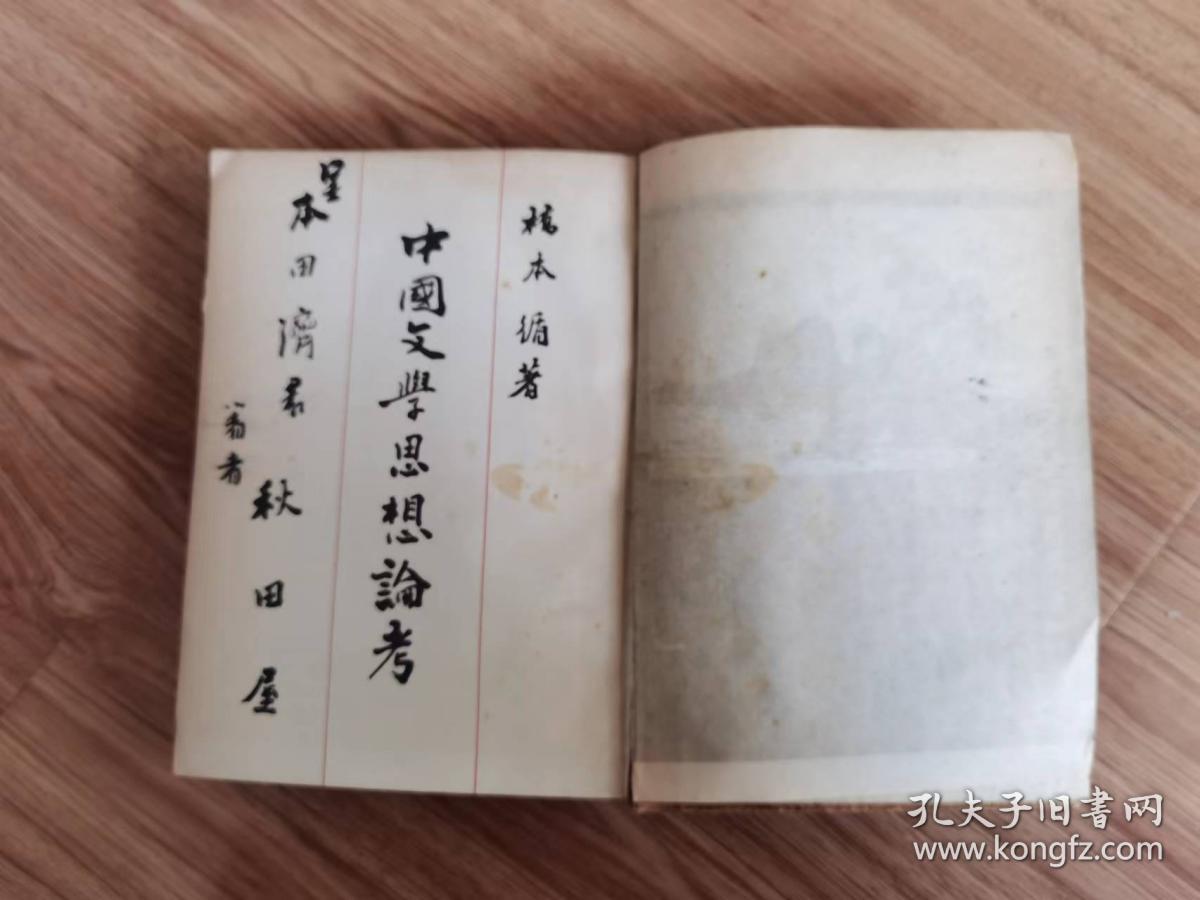 橋本循著
中國文學思想論考
呈
本田濟君
秋田屋
孔夫子旧书网
www.kongfz.com